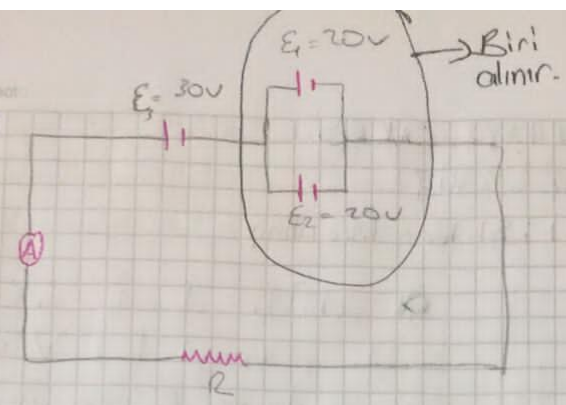 ε₁ = 20V
→ Biri
alınır.
ε₃ = 30V
ε₂ = 20V
A
R